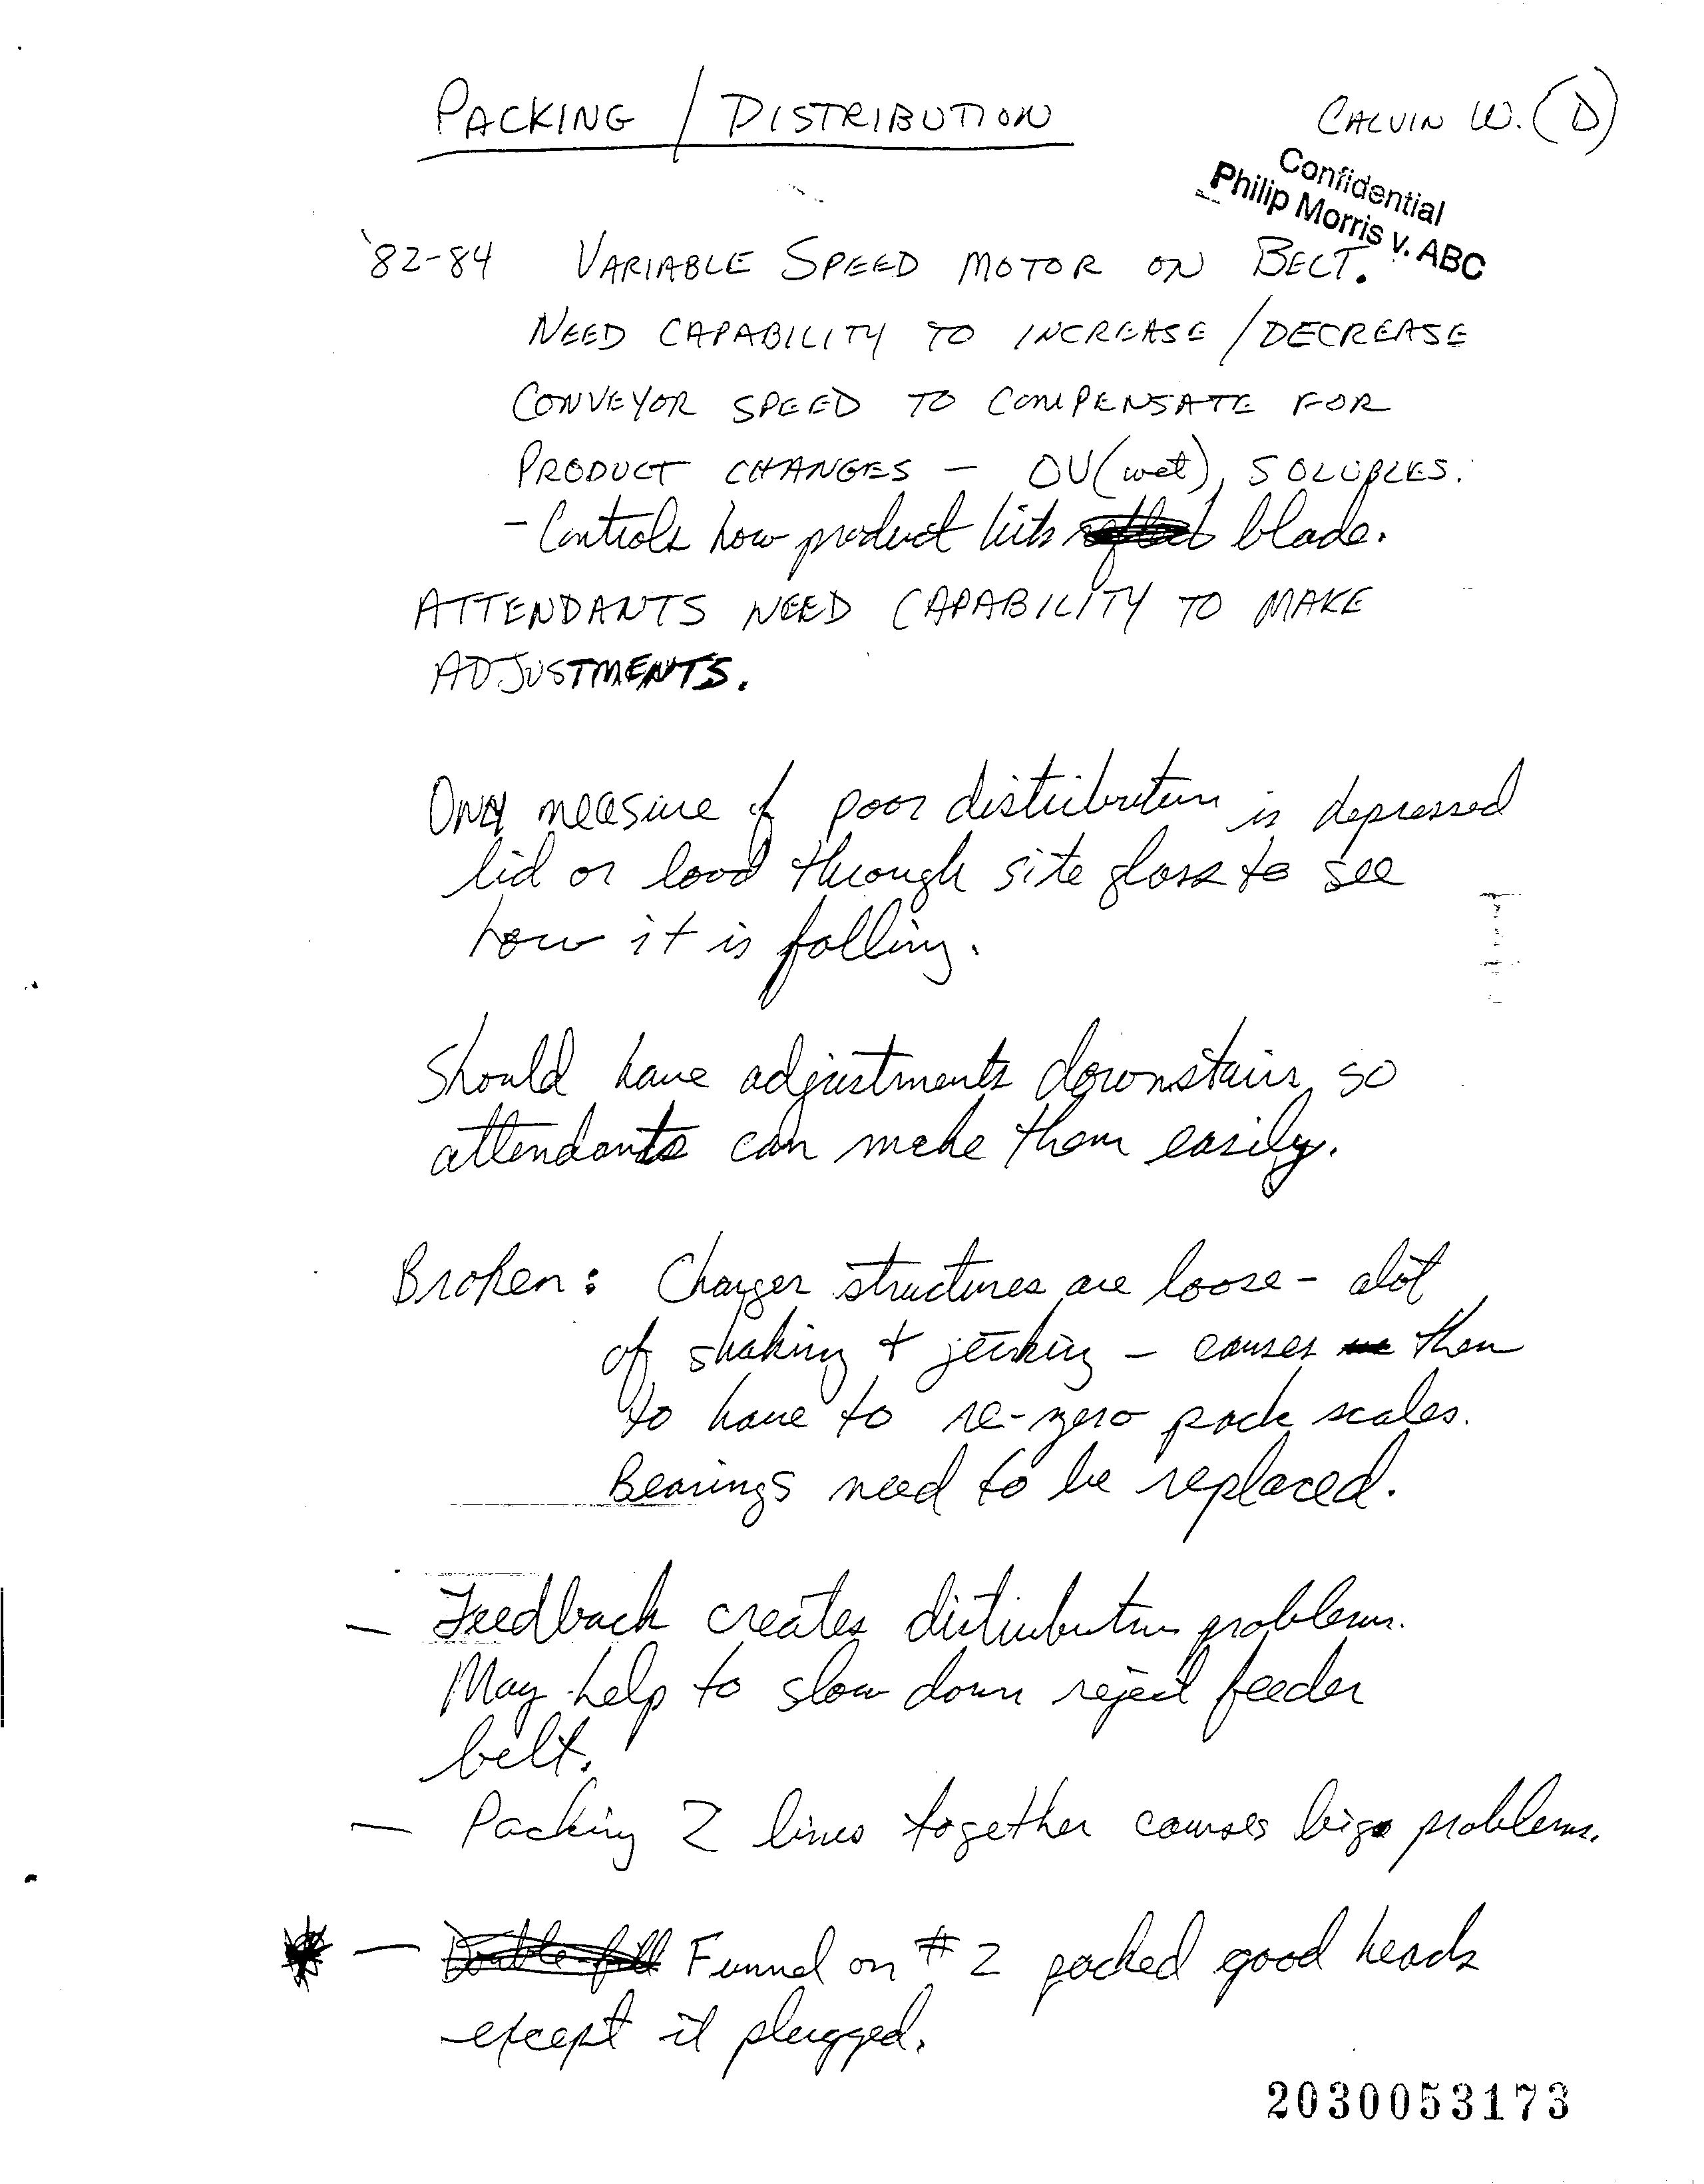 PACKING / DISTRIBUTION
CALVIN W. (D)
Confidential
Philip Morris v. ABC
'82-84 VARIABLE SPEED MOTOR ON BELT.
NEED CAPABILITY TO INCREASE / DECREASE
CONVEYOR SPEED TO COMPENSATE FOR
PRODUCT CHANGES - OV (wet), SOLUBLES.
- Controls how product hits blade.
ATTENDANTS NEED CAPABILITY TO MAKE
ADJUSTMENTS.
Only measure of poor distribution is depressed
lid or lood through site glass to see
how it is falling.
Should have adjustments downstairs, so
attendants can make them easily.
Broken: Charger structures are loose - alot
of shaking + jerking - causes them
to have to re-zero pack scales.
Bearings need to be replaced.
- Feedback creates distribution problems.
May help to slow down reject feeder
belt.
- Packing 2 lines together causes big problems.
- Funnel on #2 packed good heads
except it plugged.
2030053173